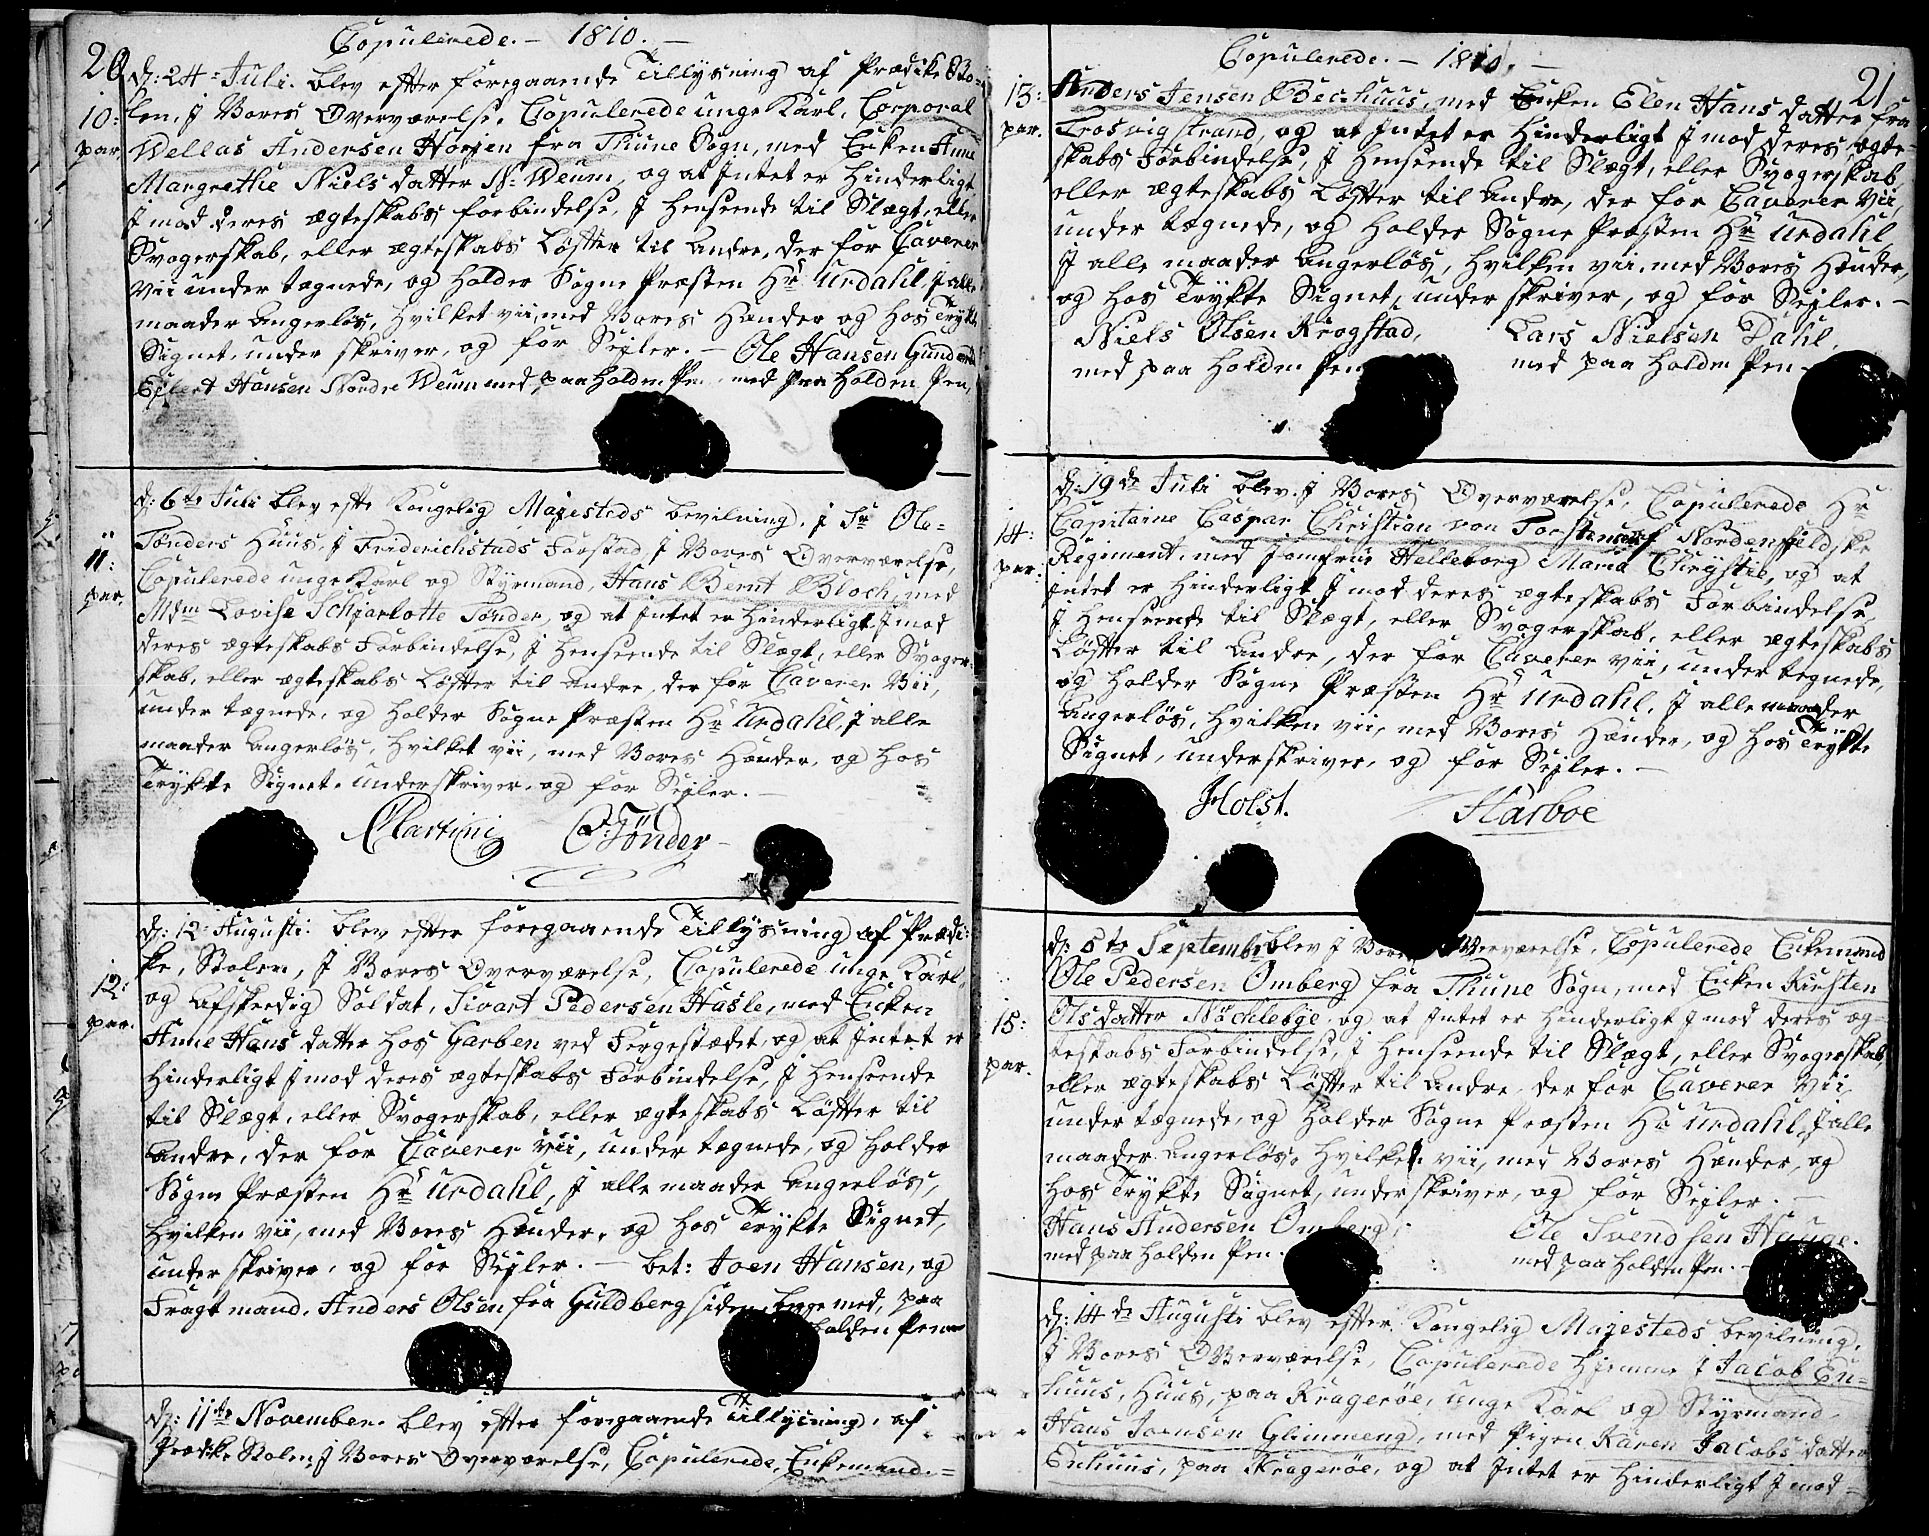 20
Copulerede. - 1810. -
d: 24 Juli. blev efter foregaaende Tillysning af Prædike Sto-
10: par
len, I Vores Overværelse, Copulerede unge Karl, Corporal
Wellas Andersen Horjen fra Thune Sogn, med Enken Anne
Margrethe Niels datter N: Weum, og at Intet er Hinderligt
I mod deres ægteskabs forbindelse, I Henseende til Slægt, eller
Svogerskab, eller ægteskabs Løfter til Andre, der for Caverer
Vii under tægnede, og Holder Sogne Præsten Hr Urdahl, I alle
maader Angerløs, Hvilket vii, med Vores Hænder og Hos Trykte
Signet, under skriver, og for Sejler. - Ole Hansen Gund
Eilert Hansen Nordre Weum med paa Holden Pen, med paa Holden Pen,
d: 6te Juli blev efter Kongelig Majesteds bevilning, I Sr Ole
11: par.
Tønders Huus, I Friderichstads Forstad, I Vores Overværelse,
Copulerede unge Karl og Styrmand, Hans Bernt Bloch, med
Mdm Lovise Schjarlotte Tønder, og at Intet er Hinderligt I mod
deres ægteskabs Forbindelse, I Henseende til Slægt, eller Svoger-
skab, eller ægteskabs Løfter til Andre, der for Caverer Vii,
under tægnede, og Holder Sogne Præsten Hr Urdahl, I alle
maader Angerløs, Hvilket vii, med Vores Hænder, og Hos
Trykte Signet, underskriver, og for Sejler. -
Martini O: Tönder
d: 12 Augusti. blev efter foregaaende Tillysning af Prædi-
12: par.
ke, Stolen, I Vores Overværelse, Copulerede unge Karl,
og Afskeedig Soldat, Sivart Pedersen Hasle, med Enken
Anne Hans datter Hos Garben ved Fergestædet, og at Intet er
Hinderligt I mod deres ægteskabs Forbindelse, I Henseende
til Slægt, eller Svogerskab, eller ægteskabs Løfter til
Andre, der for Caverer vii, under tægnede, og Holder
Sogne Præsten Hr Urdahl, I alle maader Angerløs,
Hvilken vii, med Vores Hænder, og Hos Trykte Signet,
under skriver, og for Sejler. - bet: Joen Hansen, og
Fragtmand, Anders Olsen fra Guldbergsiden, begge med, paa
holden Pen
d: 11te November. blev efter foregaaende Tillysning, af
Prædike Stolen, I Vores Overværelse, Copulerede, Enkemand.=
21
Copulerede. - 1810. -
13: par.
Anders Jensen Bechhuus, med Enken Elen Hans datter fra
Trosvig strand, og at Intet er Hinderligt I mod deres ægte-
skabs Forbindelse, I Henseende til Slægt, eller Svogerskab
eller ægteskabs Løfter til Andre, der for Caverer vii,
under tægnede, og Holder Sogne Præsten Hr Urdahl,
I alle maader Angerløs, Hvilken vii, med Vores Hænder,
og Hos Trykte Signet, under skriver, og for Sejler. -
Niels Olsen Krogstad, Lars Nielsen Dahl,
med paa Holden Pen med paa Holden Pen -
d: 19de Juli blev I Vores Overværelse, Copulerede Hr
14: par:
Capitaine Caspar Christian von Torstensen af Nordenfieldske
Regiment, med Jomfrue Helleborg Maria Chrystie, og at
Intet er Hinderligt I mod deres ægteskabs Forbindelse
I Henseende til Slægt, eller Svogerskab, eller ægteskabs
Løfter til Andre, der for Caverer vii, under tegnede,
og Holder Sogne Præsten Hr Urdahl, I alle maader
Angerløs, Hvilken vii, med Vores Hænder, og Hos Trykte
Signet, underskriver, og for Sejler. -
Holst. Harboe
d: 5te Septembr blev I Vores Overværelse, Copulerede Enkemand
Ole Pedersen Omberg fra Thune Sogn, med Enken Kirsten
15: par.
Olsdatter Nöchlebye, og at Intet er Hinderligt I mod deres æg-
teskabs Forbindelse, I Henseende til Slægt, eller Svogerskab,
eller ægteskabs Løfter til Andre, der for Caverer vii
under tægnede, og Holder Sogne Præsten Hr Urdahl, I alle
maader Angerløs, Hvilket vii, med Vores Hænder, og
Hos Trykte Signet, underskriver, og for Sejler. -
Hans Andersen Omberg, Ole Svendsen Hauge.
med paa Holden Pen. med paa Holden Pen. -
d: 14de Augusti blev efter Kongelig Majesteds bevilning,
I Vores Overværelse, Copulerede Hiemme I Jacob En-
huus, Huus, paa Kragerøe, unge Karl og Styrmand,
Hans Joensen Glimmeng, med Pigen Karen Jacobs datter
Enhuus, paa Kragerøe, og at Intet er Hinderligt I mod=